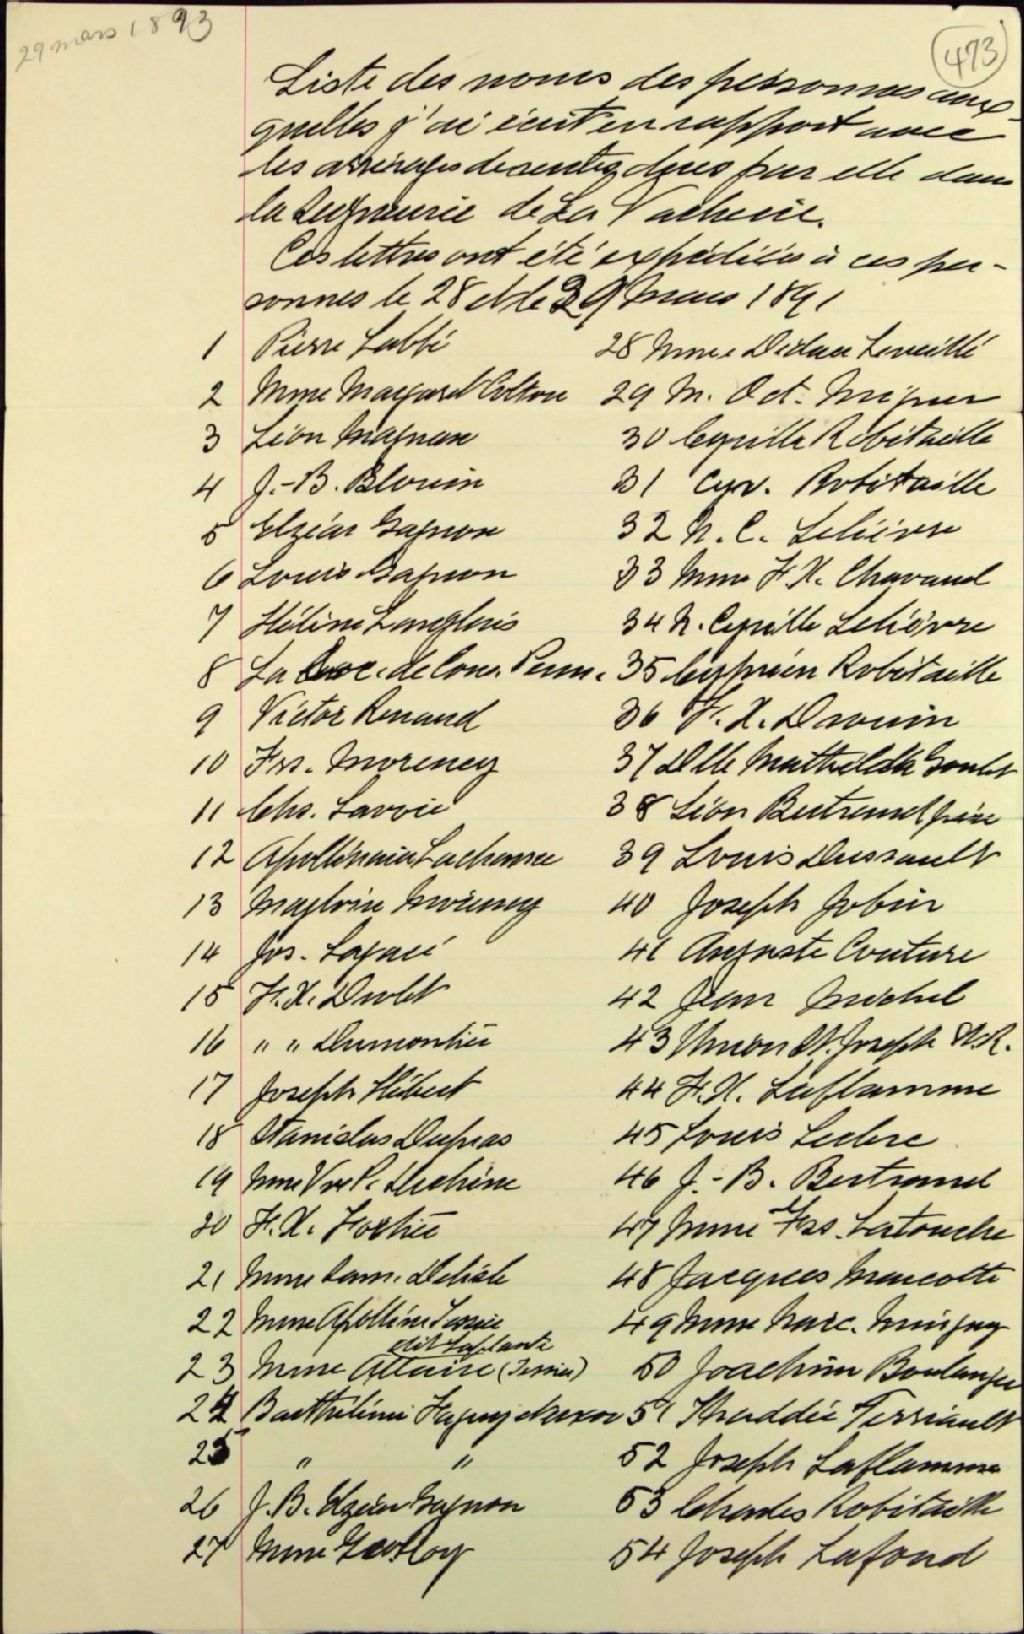 29 mars 1893
473
Liste des noms des personnes aux-
quelles j'ai écrit en rapport avec
les arrérages de rentes dues par elle dans
la Seigneurie de La Vacherie.
Ces lettres ont été expédiées à ces per-
sonnes le 28 et le 29 mars 1891
1 Pierre Labbé
2 Mme Margaret Colton
3 Léon Magnan
4 J.-B. Blouin
5 Elzéar Gagnon
6 Louis Gagnon
7 Hélène Langlois
8 La Soc. de Cons. Perm.
9 Victor Renaud
10 Frs. Morency
11 Chs. Lavoie
12 Apollinaire Lachance
13 Magloire Morency
14 Jos. Lagacé
15 F. X. Drolet
16 " " Dumontier
17 Joseph Hébert
18 Stanislas Dupras
19 Mme Vve P. Duchêne
20 F. X. Fortier
21 Mme Dam. Delisle
22 Mme Apolline Tessier
dit Laplante
23 Mme Altaire (Tessier)
24 Barthélémi
25 " "
26 J. B. Elzéar Gagnon
27 Mme
28 Mme Leveillé
29 M. Oct. Migner
30 Cyrille Robitaille
31 Cyr. Robitaille
32 N. C. Lelièvre
33 Mme F. X. Chavaud
34 N. Cyrille Lelièvre
35 Cyprien Robitaille
36 F. X. Drouin
37 Dlle Mathilda Goulet
38 Léon Bertrand père
39 Louis Dussault
40 Joseph Jobin
41 Auguste Couture
42 Jean Michel
43 Union St. Joseph St. R.
44 F. X. Laflamme
45 Louis Leclerc
46 J.-B. Bertrand
47 Mme Frs. Latouche
48 Jacques Marcotte
49 Mme Narc. Minguy
50 Joachim Boulanger
51 Thaddée Terriault
52 Joseph Laflamme
53 Charles Robitaille
54 Joseph Lafond